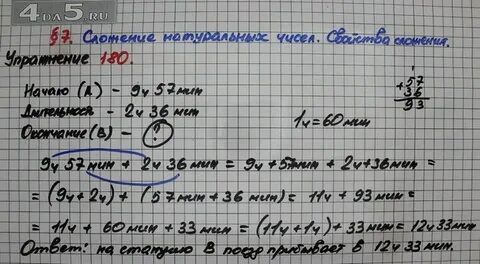 4ДА5.RU
§7. Сложение натуральных чисел. Свойства сложения.
Упражнение 180.
Начало (А) - 9ч 57 мин
Длительнося - 2ч 36 мин
Окончание (В) - ?
1
+57
36
93
1ч = 60 мин
9ч 57 мин + 2ч 36 мин = 9ч + 57 мин + 2ч + 36 мин =
= (9ч + 2ч) + (57 мин + 36 мин) = 11ч + 93 мин =
= 11ч + 60 мин + 33 мин = (11ч + 1ч) + 33 мин = 12ч 33 мин
Ответ: на станцию В поезд прибывает в 12ч 33 мин.